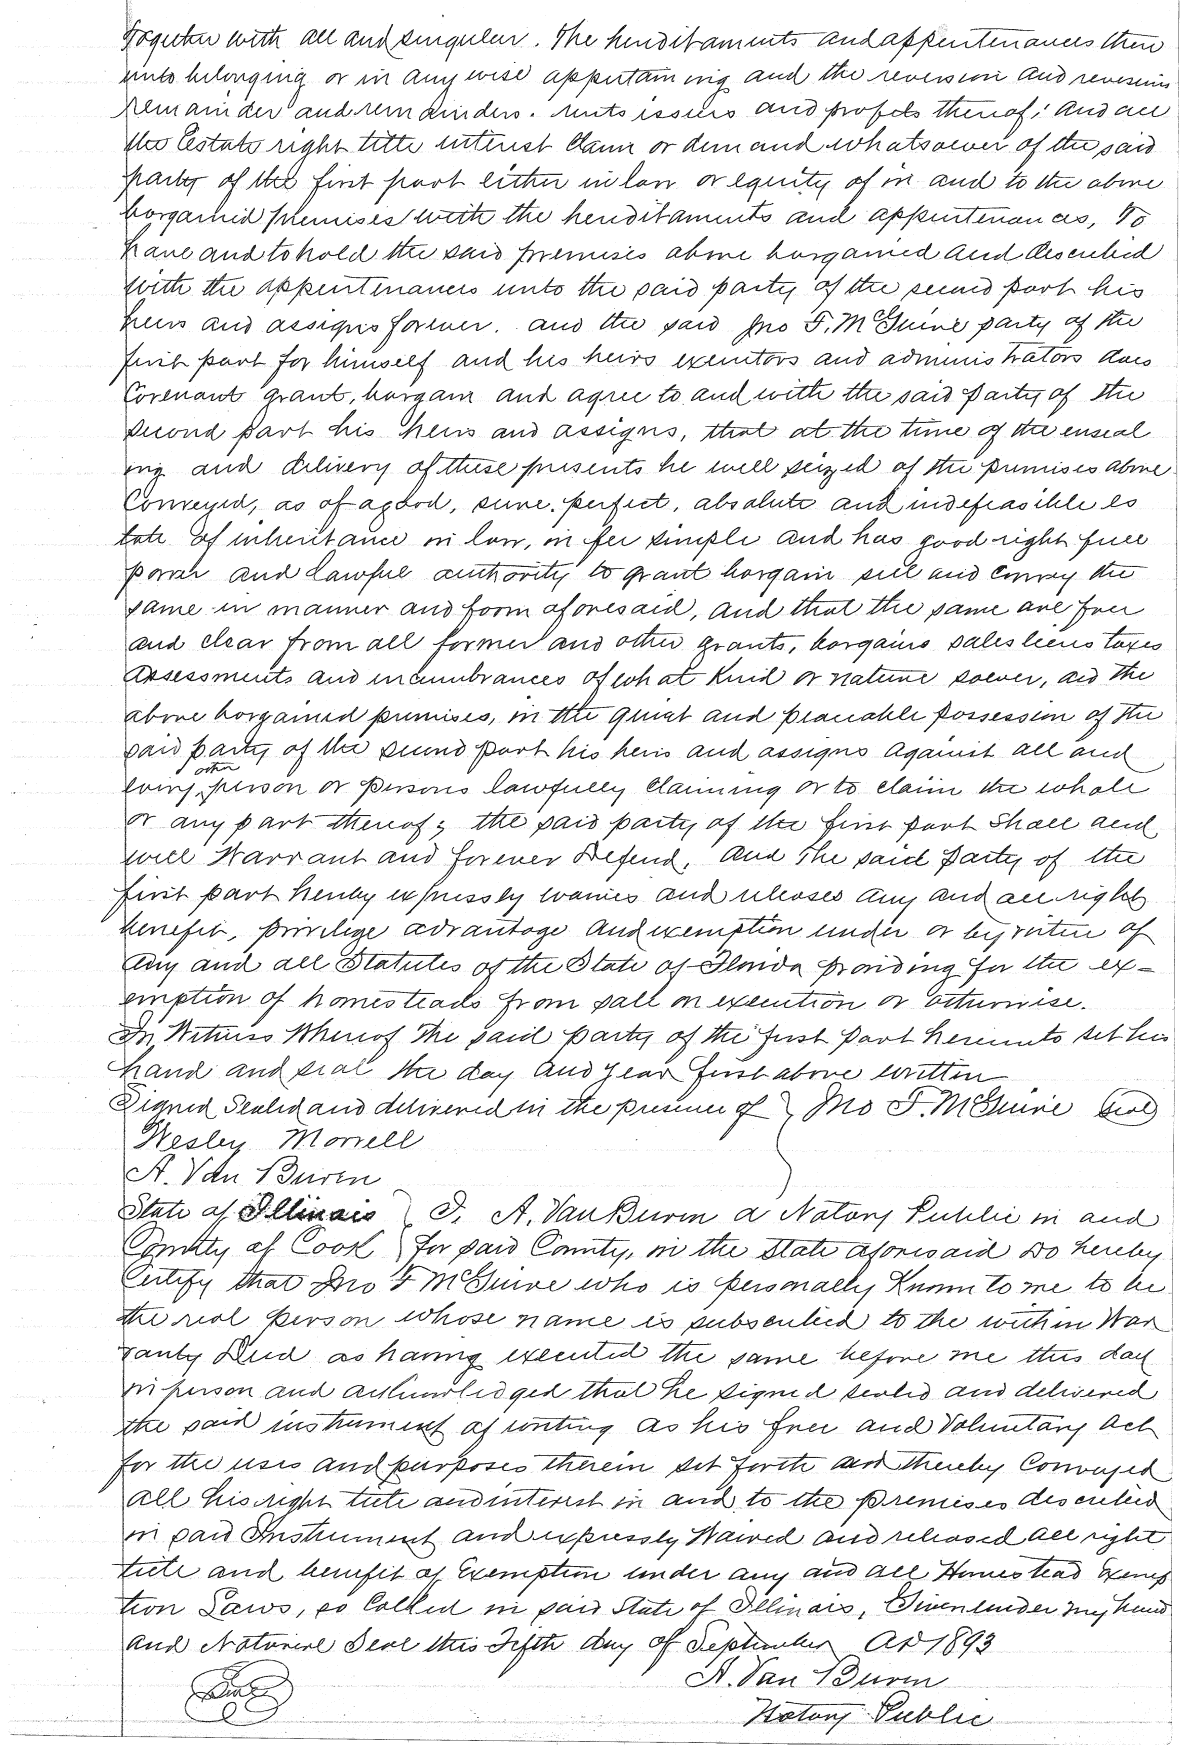 Together with all and singular. The hereditaments and appurtenances there
unto belonging or in any wise appertaining and the reversion and reversions
remainder and remainders. rents issues and profets thereof; and all
the Estate right title interest Claim or demand whatsoever of the said
party of the first part either in law or equity of in and to the above
bargained premises with the hereditaments and appurtenances, To
have and to hold the said premises above bargained and described
with the appurtenances unto the said party of the second part his
heirs and assigns forever. and the said Jno F. McGuire party of the
first part for himself and his heirs executors and administrators does
Covenant grant, bargain and agree to and with the said party of the
second part his heirs and assigns, that at the time of the enseal
ing and delivery of these presents he well seized of the premises above
Conveyed, as of a good, sure, perfect, absolute and indefeasible es
tate of inheritance in law, in fee simple and has good right full
power and lawful authority to grant bargain sell and convey the
same in manner and form aforesaid, and that the same are free
and clear from all former and other grants, bargains sales liens taxes
assessments and incumbrances of what kind or nature soever, and the
above bargained premises, in the quiet and peaceable possession of the
said party of the second part his heirs and assigns against all and
every other person or persons lawfully claiming or to claim the whole
or any part thereof; the said party of the first part Shall and
will Warrant and forever Defend. And The said party of the
first part hereby expressly waives and releases any and all right
benefit, privilege advantage and exemption under or by virtue of
any and all Statutes of the State of Florida providing for the ex-
emption of homesteads from sale on execution or otherwise.
In Witness Whereof The said party of the first part hereunto set his
hand and seal the day and year first above written
Signed Sealed and delivered in the presence of } Jno F. McGuire Seal
Wesley Morrell
A. Van Buren
State of Illinois } I, A. Van Buren a Notary Public in and
County of Cook } for said County, in the State aforesaid Do hereby
Certify that Jno F McGuire who is personally Known to me to be
the real person whose name is subscribed to the within War
ranty Deed as having executed the same before me this day
in person and acknowledged that he signed sealed and delivered
the said instrument of writing as his free and Voluntary act
for the uses and purposes therein set forth and thereby Conveyed
all his right title and interest in and to the premises described
in said Instrument and expressly Waived and released all right
title and benefit of Exemption under any and all Homestead Exemp
tion Laws, so Called in said State of Illinois, Given under my hand
and Notarial Seal this Fifth day of September AD 1893
A. Van Buren
Notary Public